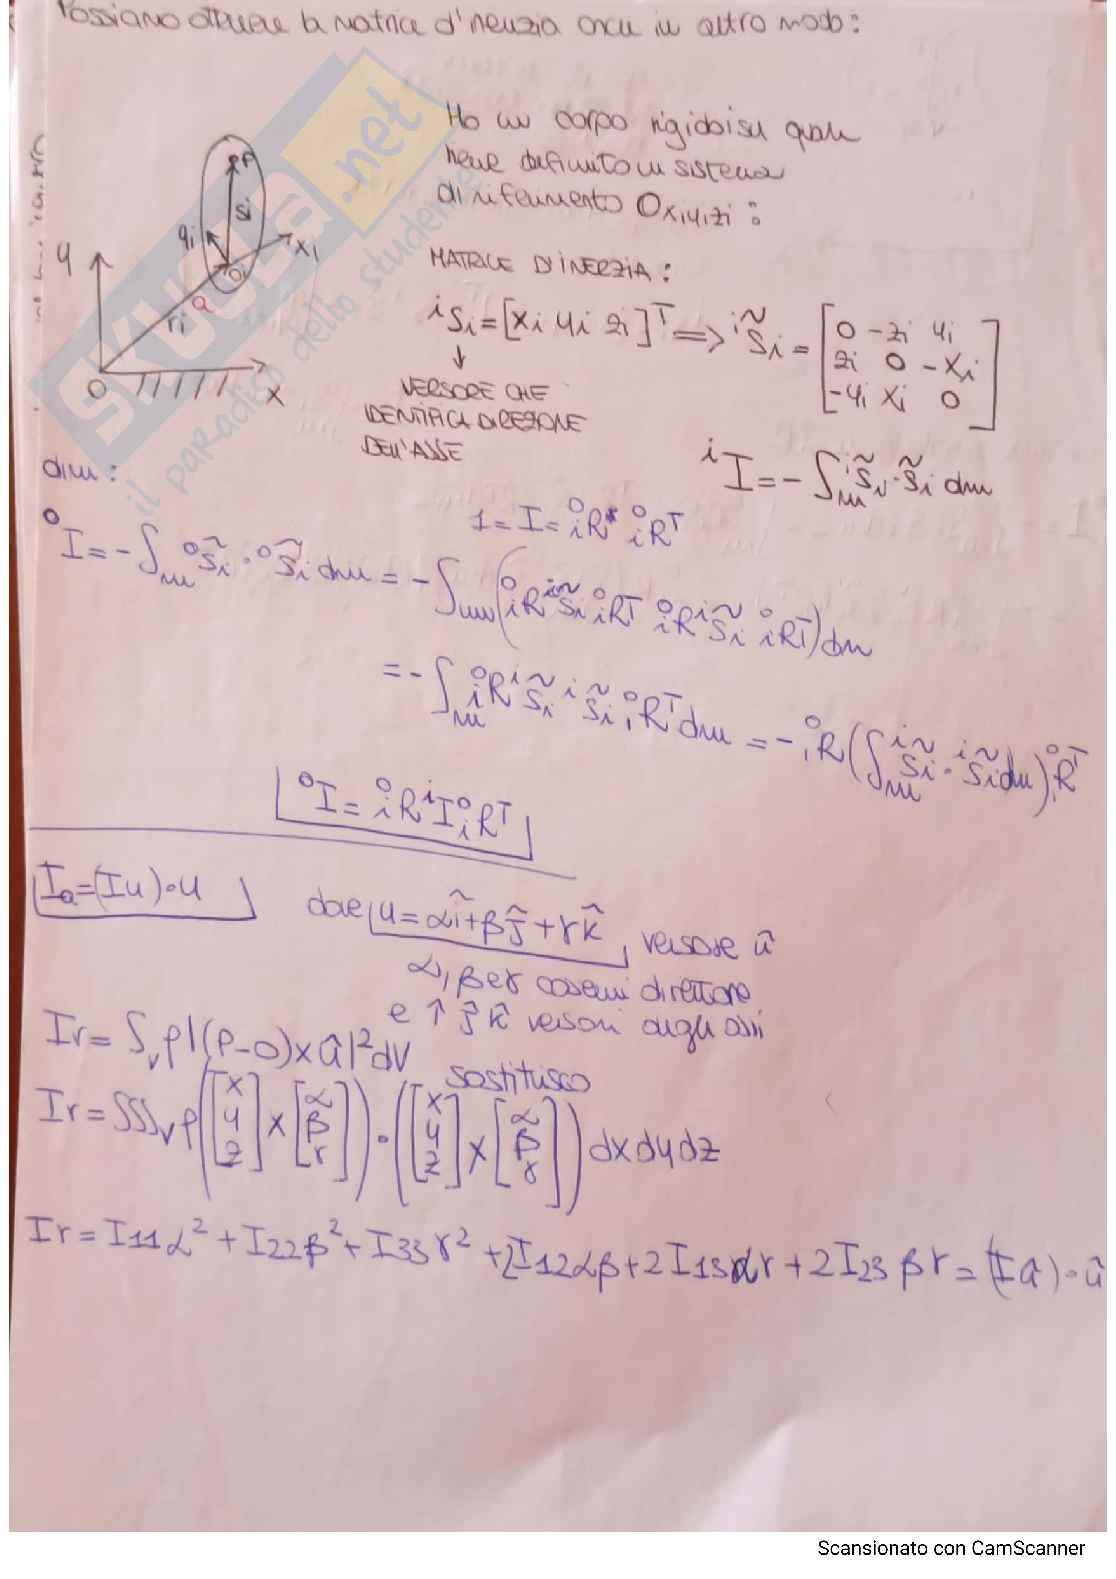 Possiamo ottenere la matrice d'inerzia anche in altro modo:
Ho un corpo rigido i su quale
viene definito un sistema
di riferimento Oxiyizi :
y
P
si
qi
xi
Oi
a
ri
O
x
MATRICE D'INERZIA :
ⁱSi = [xi yi zi]ᵀ ⟹ ⁱS̃i = [0 -zi yi
zi 0 -xi
-yi xi 0]
↓
VERSORE CHE
IDENTIFICA DIREZIONE
DELL'ASSE
ⁱI = - ∫m ⁱS̃i · S̃i dm
dim :
1 = I = ⁰iR* ⁰iRᵀ
⁰I = - ∫m ⁰S̃i · ⁰S̃i dm = - ∫m (⁰iR ⁱS̃i ⁰iRᵀ ⁰iR ⁱS̃i ⁰iRᵀ) dm
= - ∫m ⁰iR ⁱS̃i ⁱS̃i ⁰iRᵀ dm = - ⁰iR (∫m ⁱS̃i · ⁱS̃i dm) ⁰iRᵀ
⁰I = ⁰iR ⁱI ⁰iRᵀ
Ia = (Iu) · u
dove u = αî + βĵ + γk̂ versore û
α, β e γ coseni direttore
e î ĵ k̂ versori degli assi
Ir = ∫v ρ |(P-O) x û|² dV
sostituisco
Ir = ∫∫∫v ρ ([x y z] x [α β γ]) · ([x y z] x [α β γ]) dx dy dz
Ir = I11 α² + I22 β² + I33 γ² + 2 I12 αβ + 2 I13 αγ + 2 I23 βγ = (I û) · û
SKUOLA.net
il paradiso dello studente
Scansionato con CamScanner